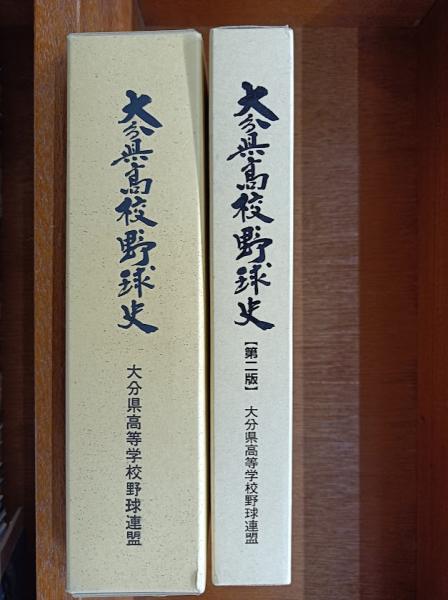 大分県高校野球史
大分県高等学校野球連盟
大分県高校野球史
【第二版】
大分県高等学校野球連盟